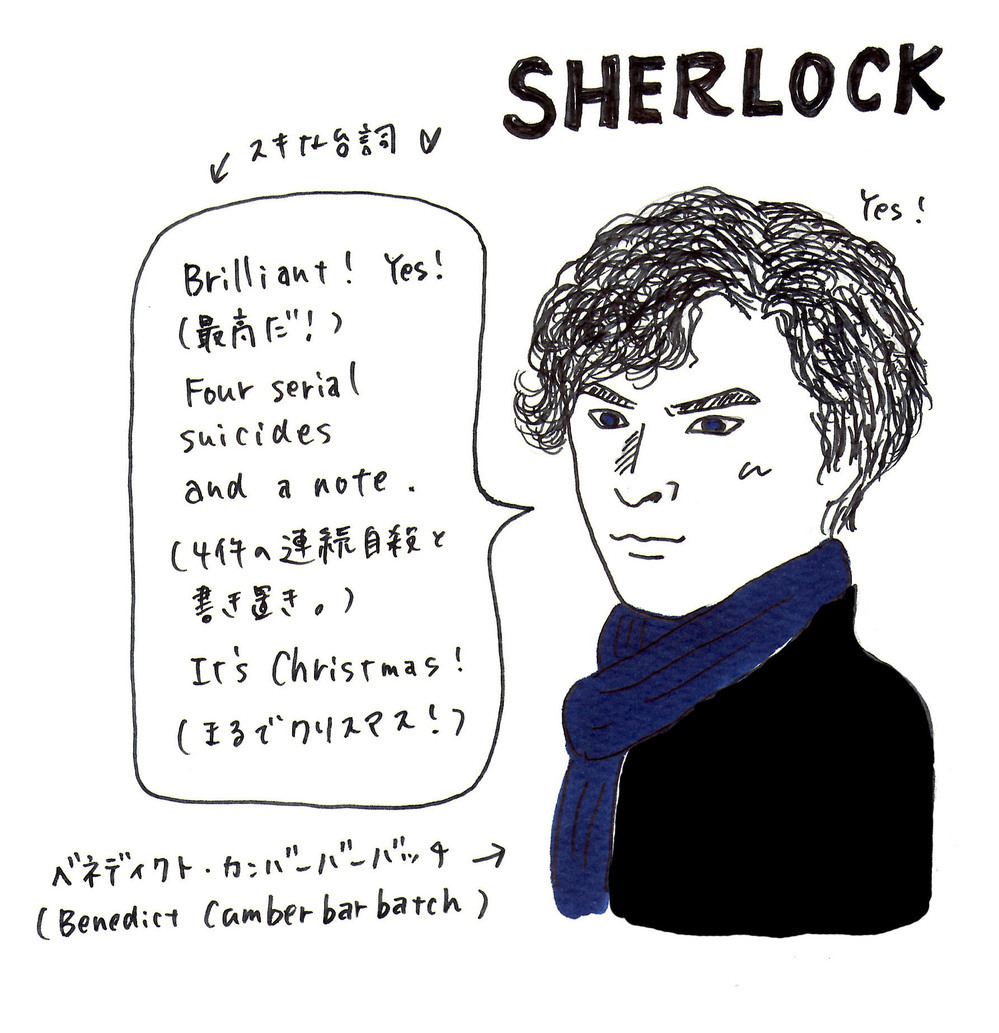 SHERLOCK
スキな台詞
Yes!
Brilliant! Yes!
(最高だ!)
Four serial
suicides
and a note.
(4件の連続自殺と
書き置き。)
It's Christmas!
(まるでクリスマス!)
ベネディクト・カンバーバーバッチ
(Benedict Camberbarbatch)